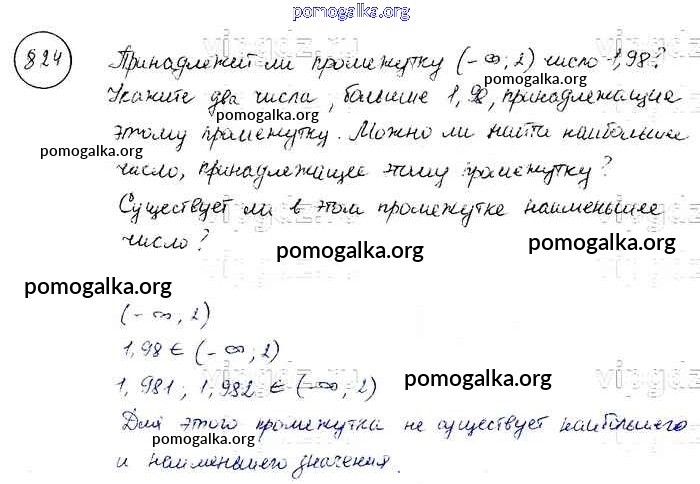 pomogalka.org
824
Принадлежит ли промежутку (-∞; 2) число 1,98?
pomogalka.org
Укажите два числа, больше 1,98, принадлежащие
pomogalka.org
этому промежутку. Можно ли найти наибольшее
pomogalka.org
число, принадлежащее этому промежутку?
Существует ли в этом промежутке наименьшее
число?
pomogalka.org
pomogalka.org
pomogalka.org
(-∞, 2)
1,98 ∈ (-∞; 2)
pomogalka.org
1,981; 1,982 ∈ (-∞, 2)
Для этого промежутка не существует наибольшего
pomogalka.org
и наименьшего значения.